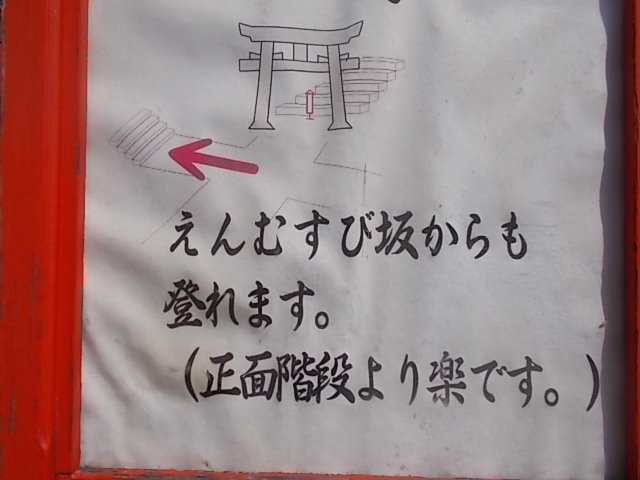 えんむすび坂からも
登れます。
（正面階段より楽です。）